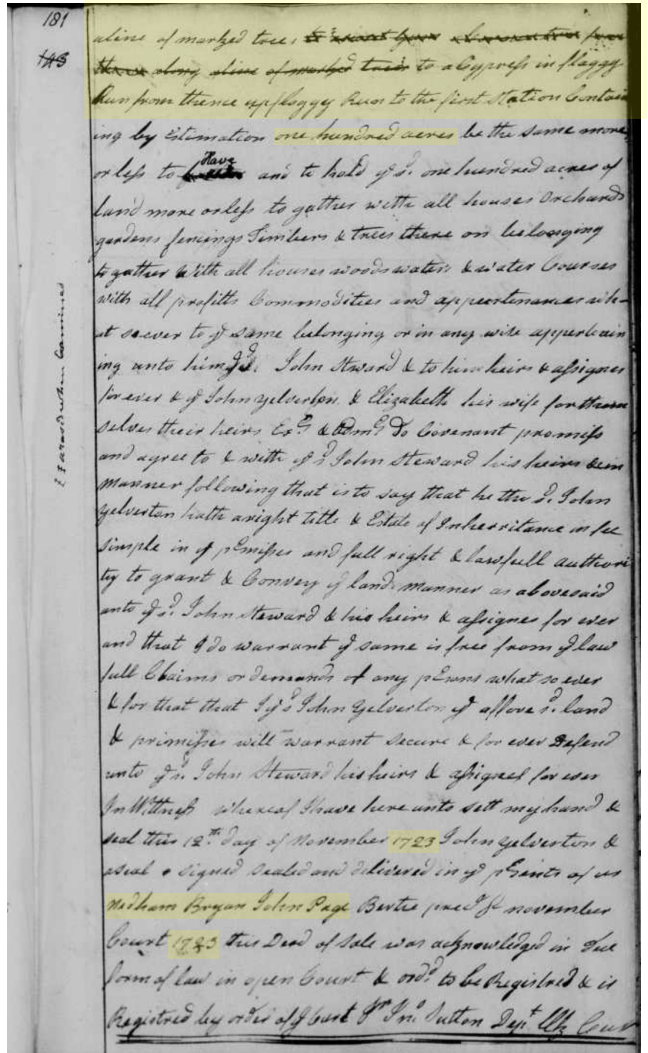 181
143
aline of marked trees
along aline of marked trees to a Cypress in flaggy
Run from thence up flaggy Run to the first Station Contain
ing by Estimation one hundred acres be the same more
or less to Have and to hold yᵉ sᵈ. one hundred acres of
land more or less to gather with all houses Orchards
gardens fencings Timbers & trees there on belonging
to gather with all houses woods waters & water Courses
with all profitts Commodities and appertenances wh
at soever to yᵉ same belonging or in any wise appertain
ing unto him yᵉ sᵈ. John Steward & to his heirs & assignes
for ever & yᵉ John Yelverton & Elizabeth his wife for them
selves their heirs Exʳˢ & Admʳˢ Do Covenant promiss
and agree to & with yᵉ sᵈ John Steward his heirs & in
manner following that is to say that he the sᵈ. John
Yelverton hath a right title & Estate of Inherritance in fee
simple in yᵉ pᵉmisses and full right & lawfull authori
ty to grant & Convey yᵉ land manner as abovesaid
unto yᵉ sᵈ. John Steward & his heirs & assignes for ever
and that I do warrant yᵉ same is free from yᵉ law
full Claims or demands of any pᵉrsons what so ever
& for that that I yᵉ sᵈ John Yelverton yᵉ affore sᵈ. land
& primisses will warrant secure & for ever Defend
unto yᵉ sᵈ. John Steward his heirs & assignes for ever
In Wittness whereof I have here unto sett my hand &
seal this 12ᵗʰ day of November 1723 John Yelverton &
a seal signed sealed and delivered in yᵉ pᵉsents of us
Nedham Bryan John Page Bertie precᵗ Sˢ november
Court 1723 this Deed of Sale was acknowledged in due
form of law in open Court & ordᵈ to be Registred & is
Registred by order of yᵉ Court Pʳ Jnᵒ Sutton Depᵗ Clk Court